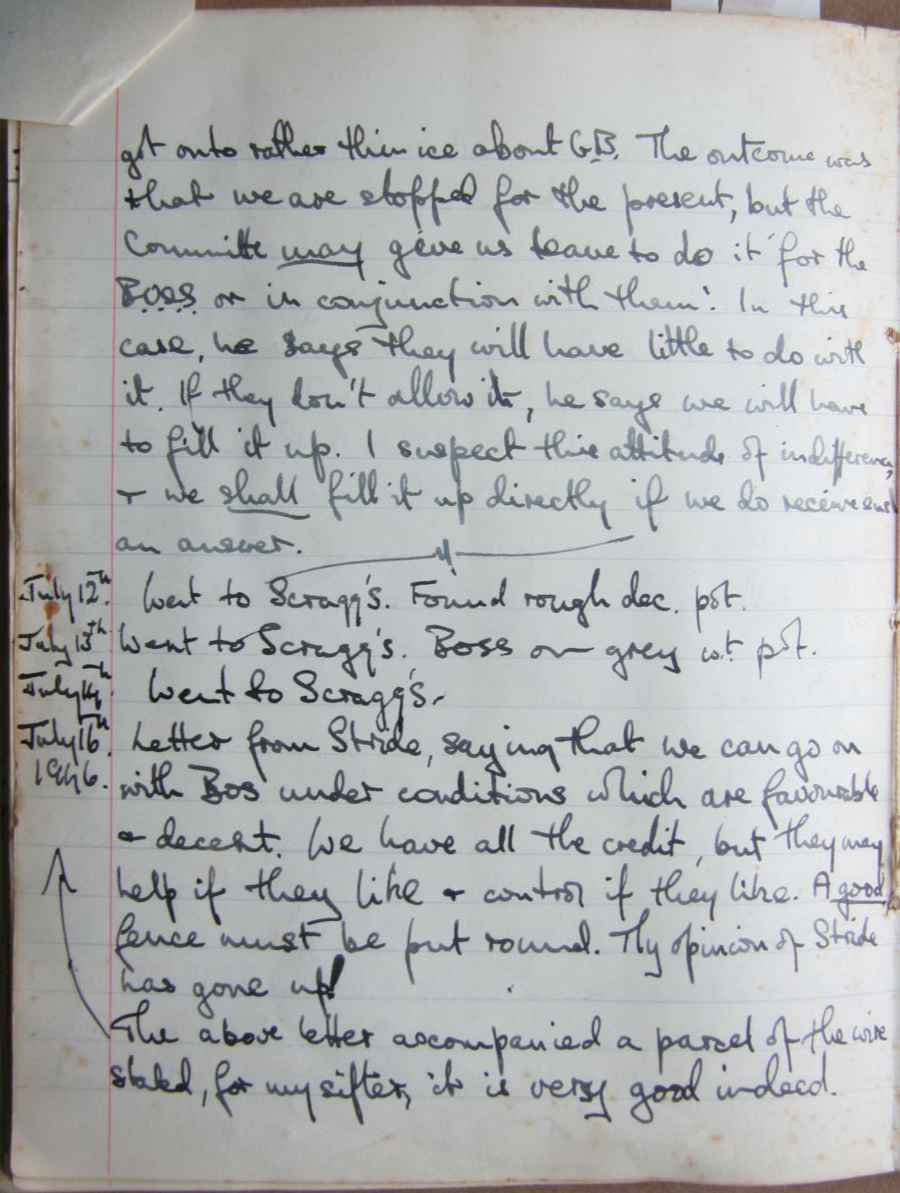 got onto rather thin ice about G.B. The outcome was
that we are stopped for the present, but the
Committe may give us leave to do it 'for the
B.O.S.S. or in conjunction with them'. In this
case, he says they will have little to do with
it. If they don't allow it, he says we will have
to fill it up. I suspect this attitude of indifference,
+ we shall fill it up directly if we do receive such
an answer.
July 12th. Went to Scragg's. Found rough dec. pot.
July 13th Went to Scragg's. Boss on grey w.t. pot.
July 14th. Went to Scragg's.
July 16th. Letter from Stride, saying that we can go on
1946. with Bos under conditions which are favourable
+ decent. We have all the credit, but they may
help if they like + control if they like. A good
fence must be put round. My opinion of Stride
has gone up!
The above letter accompanied a parcel of the wire
stated, for my sifter, it is very good indeed.